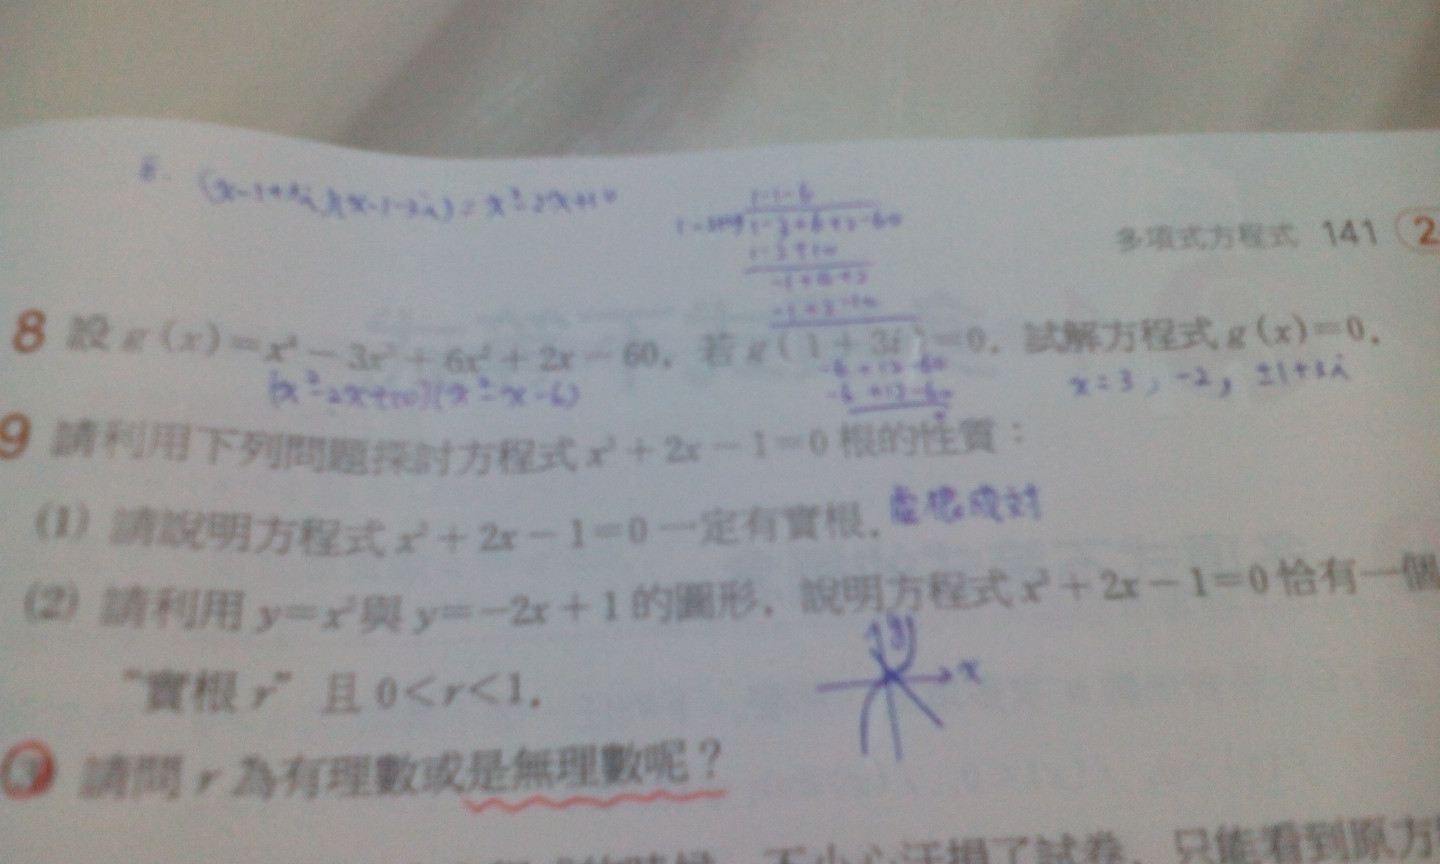 8. (x-1+3i)(x-1-3i)=x²-2x+10
1-1-6
1-3+6+2-60
1-2+10
多項式方程式 141 2
-1-4+2
-1+2-10
8 設 g(x)=x⁴-3x³+6x²+2x-60，若 g(1+3i)=0，試解方程式 g(x)=0.
-6+12-60
(x²-2x+10)(x²-x-6)
-6+12-60
x=3, -2, ±1+3i
9 請利用下列問題探討方程式 x³+2x-1=0 根的性質：
(1) 請說明方程式 x³+2x-1=0 一定有實根. 虛根成對
(2) 請利用 y=x³ 與 y=-2x+1 的圖形，說明方程式 x³+2x-1=0 恰有一個
y
x
“實根 r” 且 0<r<1.
請問 r 為有理數或是無理數呢？
不小心汙損了試卷，只能看到原方